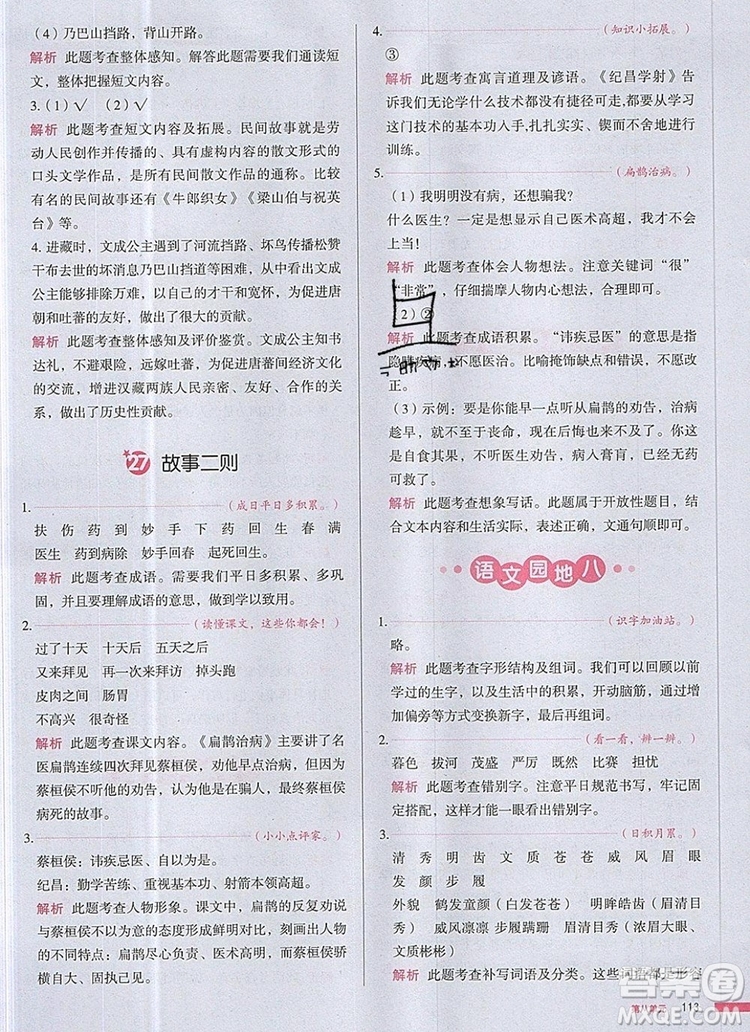 （4）乃巴山挡路，背山开路。
解析 此题考查整体感知。解答此题我们通读短
文，一定要整体把握短文内容。
3.（1）√ （2）√
解析 此题考查短文内容及拓展。民间故事就是劳
动人民创作并传播的、具有虚构内容的散文形式的
口头文学作品，是所有民间散文作品的通称。还有
很多的民间故事比如《牛郎织女》《梁山伯与祝英
台》等。
4. 进藏时，文成公主遇到了河流挡路、坏鸟传播松赞
干布去世的坏消息乃巴山挡道等困难，从文成公主
能够排除万难，体现了自己的才干和宽怀，为促进唐
朝和吐蕃的友好做出了很大的贡献。
解析 此题考查整体感知及评价鉴赏。文成公主知书
达礼，不避艰险，远嫁吐蕃，为促进唐蕃间经济文化
的交流，增进汉藏两族人民亲密、友好、合作的关系，
做出了历史性贡献。
27 故事二则
1.（成日平日多积累。）
扶 伤 药 到 妙 手 下 药 回 生 春 满
医生 药到病除 妙手回春 起死回生。
解析 此题考查成语。需我们平日多积累、多巩
固，并理解成语的意思，学以致用。
2.（读懂课文，这些你都会！）
过了十天 十天后 五天之后
又来拜见 再一次来拜访 掉头跑
皮肉之间 肠胃
不高兴 很奇怪
解析 此题考查课文内容。《扁鹊治病》主要讲了名
医扁鹊连续四次拜见蔡桓侯，劝他早点治病，但是
蔡桓侯不听他的劝告，导致他的病越来越重，最后
病死的故事。
3.（小小点评家。）
蔡桓侯：讳疾忌医、自以为是。
纪昌：勤学苦练、重视基本功、射箭本领强。
解析 此题考查人物形象。课文中，扁鹊的反复劝说
与蔡桓侯的态度形成鲜明对比，向我们展示了人物
的不同特点：扁鹊尽心负责、医术高明，蔡桓侯骄
傲自大、固执己见。
4.（知识小拓展。）
③
解析 此题考查寓言道理及谚语。《纪昌学射》告
诉我们无论学什么技术都没有捷径可走,都要从学习
这门技术的基本功入手,扎扎实实、锲而不舍地进行
训练。
5.（扁鹊治病。）
（1）我明明没有病，还想骗我？
什么医生？一定是想显示自己医术高超，我才不会
上当！
解析 此题考查体会人物想法。注意关键词“很”
“非常”，仔细揣摩人物内心想法，合理即可。
2）②
解析 此题考查成语积累。“讳疾忌医”的意思是指
隐瞒疾病，不愿医治。比喻掩饰缺点和错误，不愿改
正。
（3）示例：要是你能早一点听从扁鹊的劝告，治病
趁早，就不至于丧命，现在后悔也没用了，这便
是自食其果。病在早期好治，如果病入膏肓，就无药
可救了。
解析 此题考查想象写话。此题属于开放性题目，结
合文本内容和生活实际，表达正确、文通句顺即可。
语文园地八
1.（识字加油站。）
略。
解析 此题考查字形结构及组词。我们可以利用课本
学过的生字，以及生活中的积累，开动脑筋，通过增
加偏旁等方式变换新字，最后再组词。
2.（看一看，辨一辨。）
暮色 拔河 茂盛 严厉 既然 比赛 担忧
解析 此题考查错别字。需平日规范书写，牢记固
定搭配，才能准确无误的查出错别字。
3.（日积月累。）
清 秀 明 齿 文 质 苍 苍 威 风 眉 眼
发 童 步 履
外貌 鹤发童颜（白发苍苍） 明眸皓齿（眉清目
秀） 威风凛凛 步履蹒跚 （浓眉大眼、
文质彬彬）
解析 此题考查补写词语及分类。这些词语都是形容
第八单元 113
答案圈
MXQE.COM